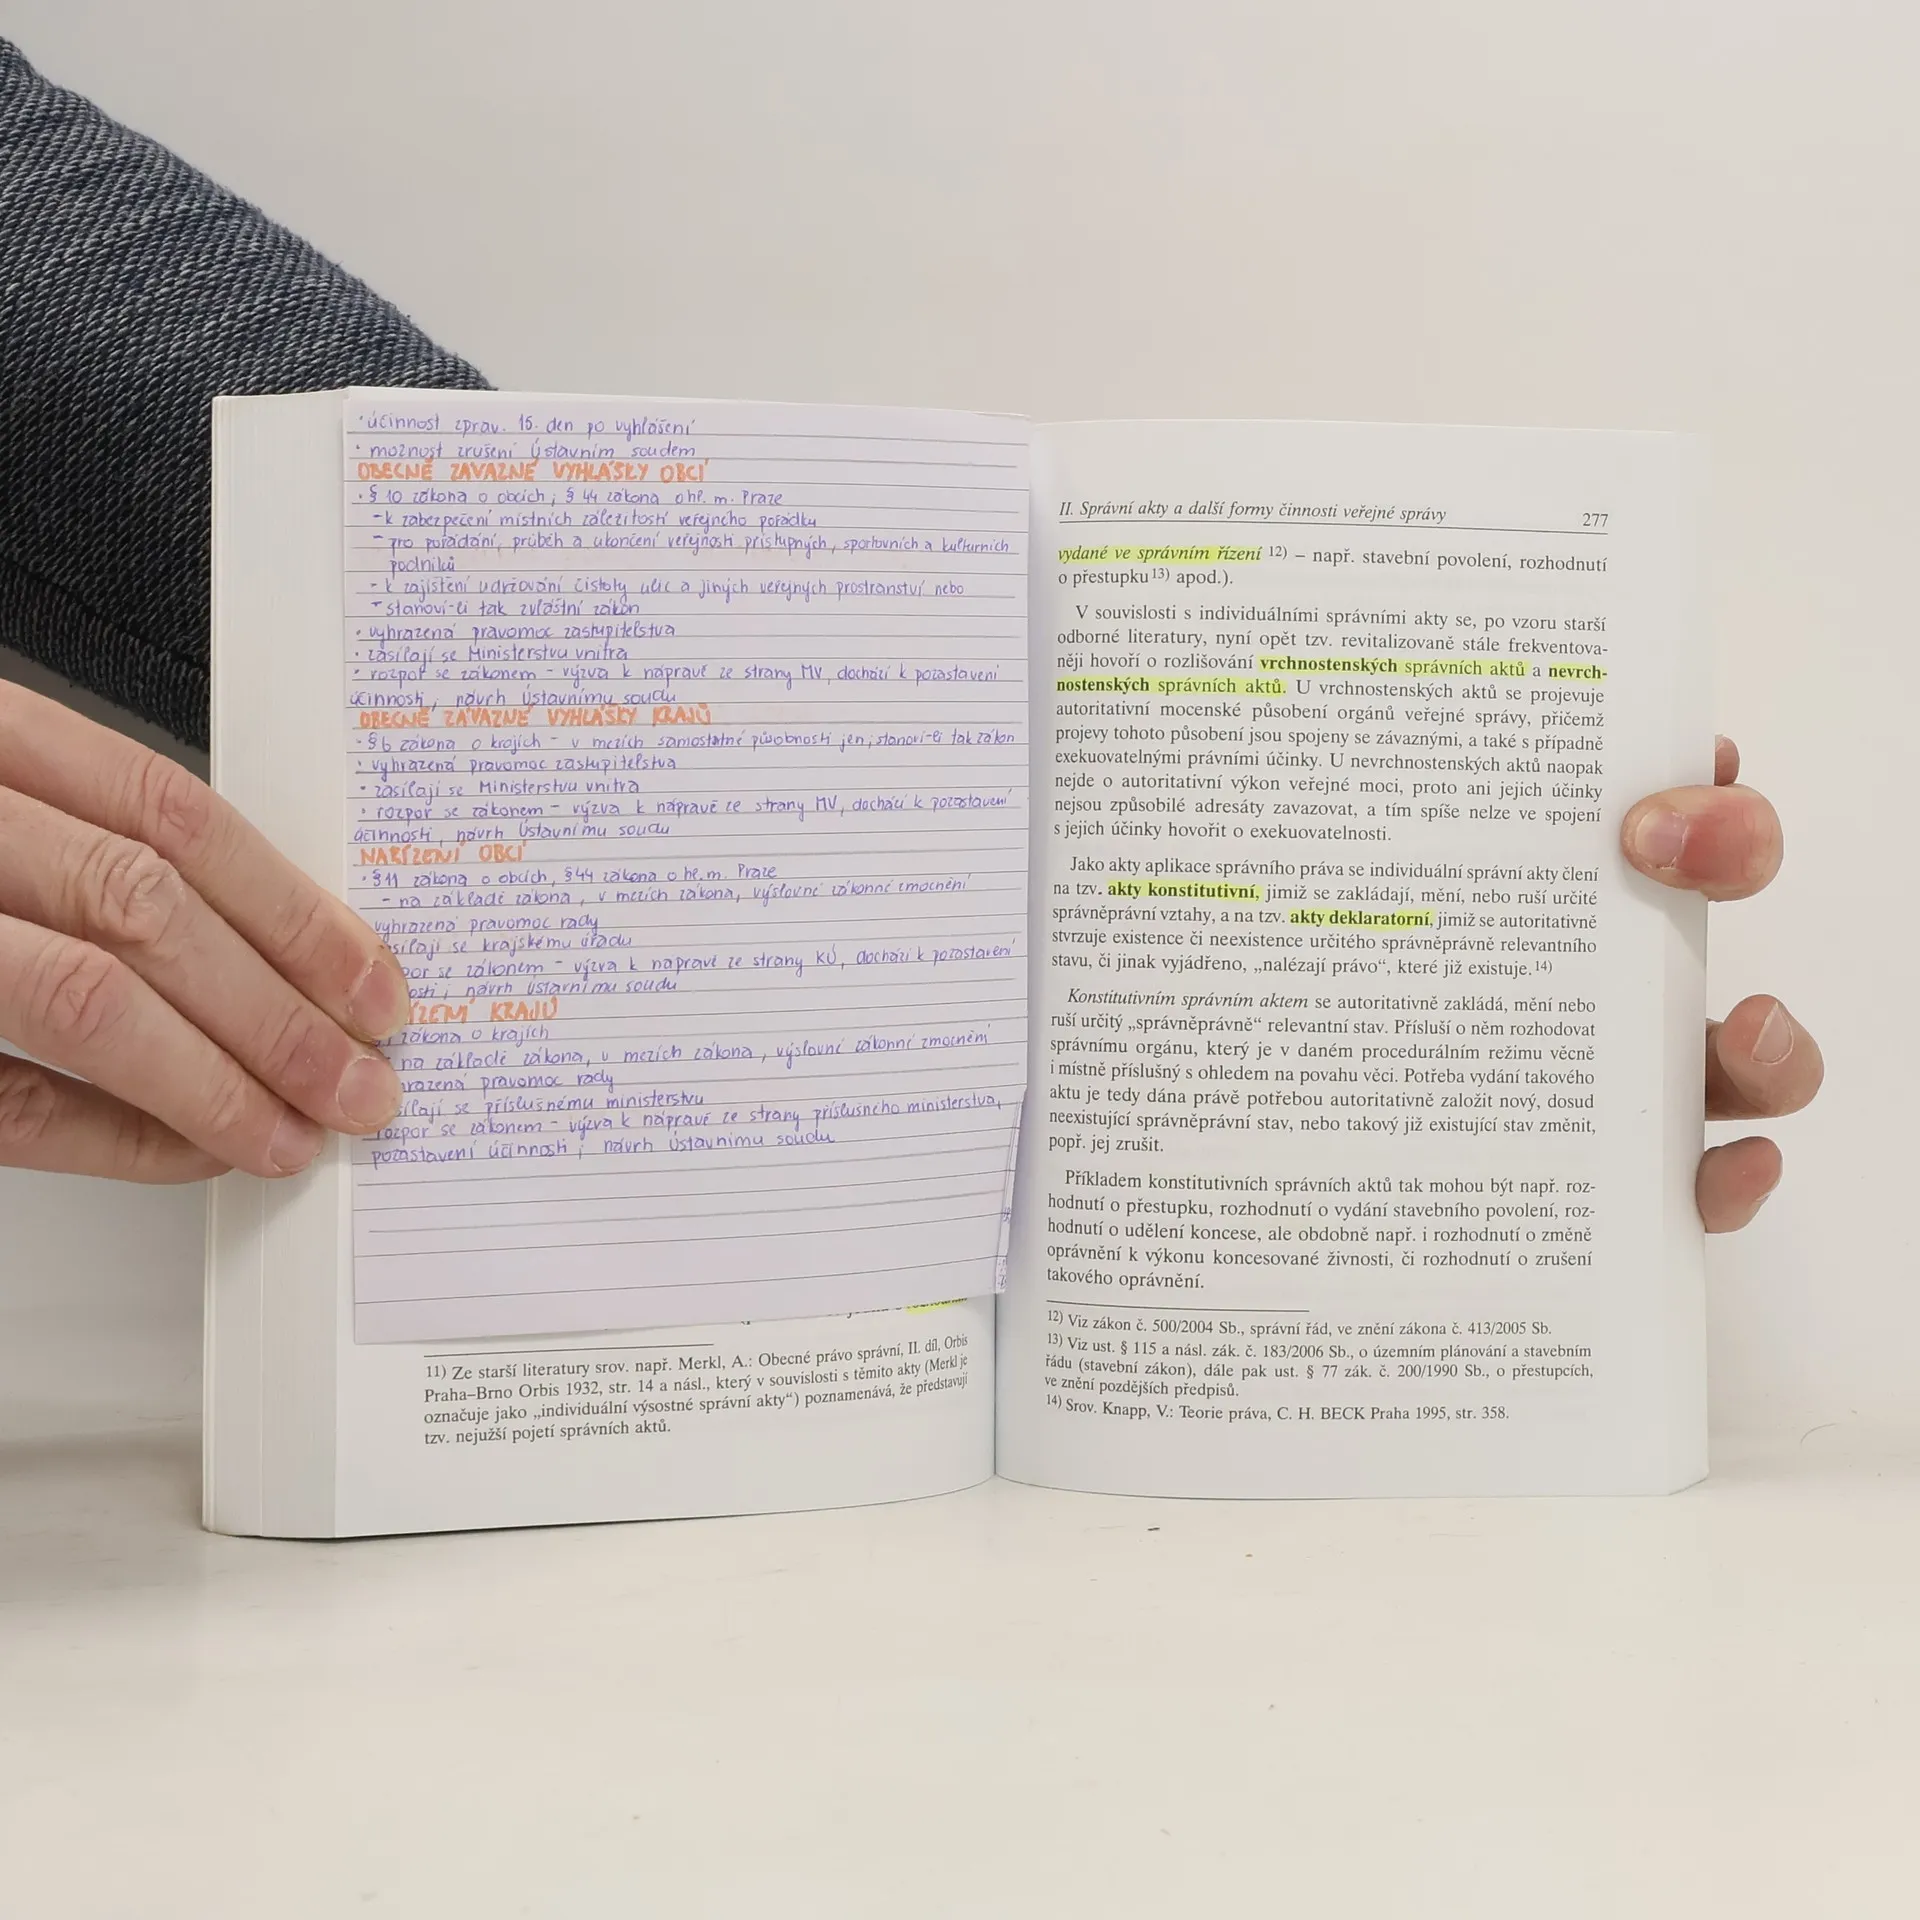 · účinnost zprav. 15. den po vyhlášení
· možnost zrušení Ústavním soudem
OBECNĚ ZÁVAZNÉ VYHLÁŠKY OBCÍ
· § 10 zákona o obcích; § 44 zákona o hl. m. Praze
- k zabezpečení místních záležitostí veřejného pořádku
- pro pořádání, průběh a ukončení veřejnosti přístupných, sportovních a kulturních
podniků
- k zajištění udržování čistoty ulic a jiných veřejných prostranství nebo
- stanoví-li tak zvláštní zákon
· vyhrazená pravomoc zastupitelstva
· zasílají se Ministerstvu vnitra
· rozpor se zákonem - výzva k nápravě ze strany MV, dochází k pozastavení
účinnosti, návrh Ústavnímu soudu
OBECNĚ ZÁVAZNÉ VYHLÁŠKY KRAJŮ
· § 6 zákona o krajích - v mezích samostatné působnosti jen, stanoví-li tak zákon
· vyhrazená pravomoc zastupitelstva
· zasílají se Ministerstvu vnitra
· rozpor se zákonem - výzva k nápravě ze strany MV, dochází k pozastavení
účinnosti, návrh Ústavnímu soudu
NAŘÍZENÍ OBCÍ
· § 11 zákona o obcích, § 44 zákona o hl. m. Praze
- na základě zákona, v mezích zákona, výslovné zákonné zmocnění
vyhrazená pravomoc rady
sílají se krajskému úřadu
por se zákonem - výzva k nápravě ze strany KÚ, dochází k pozastavení
osti; návrh Ústavnímu soudu
ÍZENÍ KRAJŮ
zákona o krajích
na základě zákona, v mezích zákona, výslovné zákonné zmocnění
hrazená pravomoc rady
sílají se příslušnému ministerstvu
rozpor se zákonem - výzva k nápravě ze strany příslušného ministerstva,
pozastavení účinnosti; návrh Ústavnímu soudu
11) Ze starší literatury srov. např. Merkl, A.: Obecné právo správní, II. díl, Orbis
Praha–Brno Orbis 1932, str. 14 a násl., který v souvislosti s těmito akty (Merkl je
označuje jako „individuální výsostné správní akty“) poznamenává, že představují
tzv. nejužší pojetí správních aktů.
II. Správní akty a další formy činnosti veřejné správy 277
vydané ve správním řízení 12) – např. stavební povolení, rozhodnutí
o přestupku 13) apod.).
V souvislosti s individuálními správními akty se, po vzoru starší
odborné literatury, nyní opět tzv. revitalizovaně stále frekventova-
něji hovoří o rozlišování vrchnostenských správních aktů a nevrch-
nostenských správních aktů. U vrchnostenských aktů se projevuje
autoritativní mocenské působení orgánů veřejné správy, přičemž
projevy tohoto působení jsou spojeny se závaznými, a také s případně
exekuovatelnými právními účinky. U nevrchnostenských aktů naopak
nejde o autoritativní výkon veřejné moci, proto ani jejich účinky
nejsou způsobilé adresáty zavazovat, a tím spíše nelze ve spojení
s jejich účinky hovořit o exekuovatelnosti.
Jako akty aplikace správního práva se individuální správní akty člení
na tzv. akty konstitutivní, jimiž se zakládají, mění, nebo ruší určité
správněprávní vztahy, a na tzv. akty deklaratorní, jimiž se autoritativně
stvrzuje existence či neexistence určitého správněprávně relevantního
stavu, či jinak vyjádřeno, „nalézají právo“, které již existuje. 14)
Konstitutivním správním aktem se autoritativně zakládá, mění nebo
ruší určitý „správněprávně“ relevantní stav. Přísluší o něm rozhodovat
správnímu orgánu, který je v daném procedurálním režimu věcně
i místně příslušný s ohledem na povahu věci. Potřeba vydání takového
aktu je tedy dána právě potřebou autoritativně založit nový, dosud
neexistující správněprávní stav, nebo takový již existující stav změnit,
popř. jej zrušit.
Příkladem konstitutivních správních aktů tak mohou být např. roz-
hodnutí o přestupku, rozhodnutí o vydání stavebního povolení, roz-
hodnutí o udělení koncese, ale obdobně např. i rozhodnutí o změně
oprávnění k výkonu koncesované živnosti, či rozhodnutí o zrušení
takového oprávnění.
12) Viz zákon č. 500/2004 Sb., správní řád, ve znění zákona č. 413/2005 Sb.
13) Viz ust. § 115 a násl. zák. č. 183/2006 Sb., o územním plánování a stavebním
řádu (stavební zákon), dále pak ust. § 77 zák. č. 200/1990 Sb., o přestupcích,
ve znění pozdějších předpisů.
14) Srov. Knapp, V.: Teorie práva, C. H. BECK Praha 1995, str. 358.